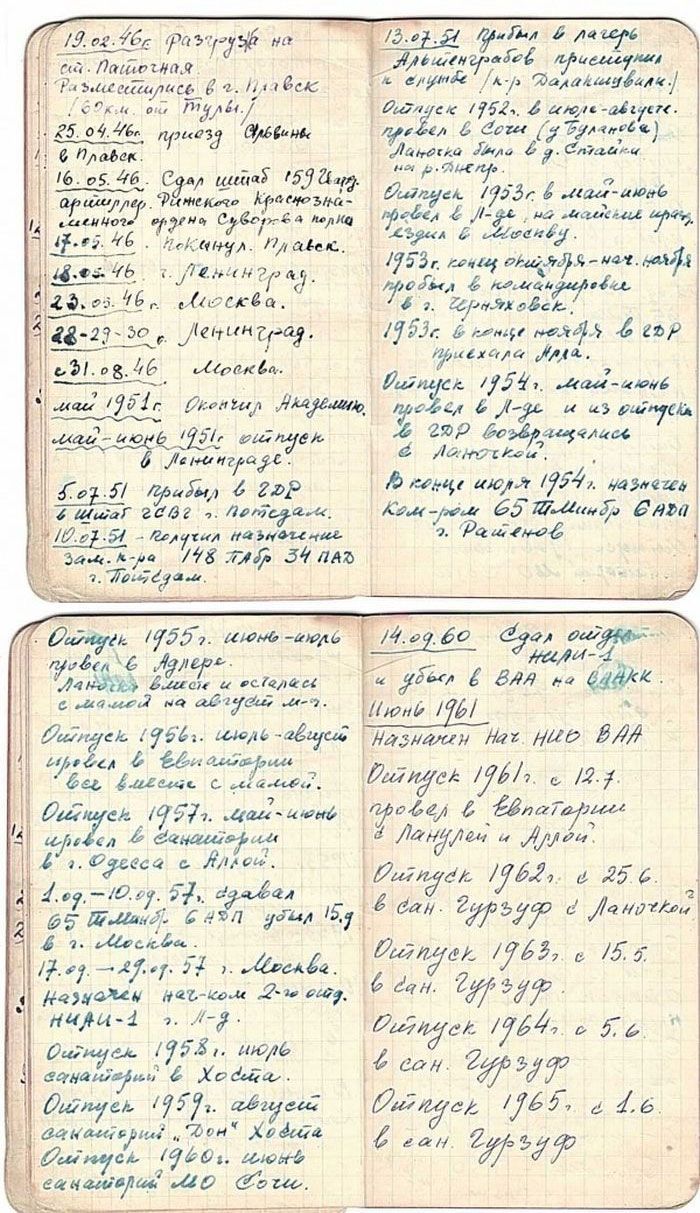 19.02.46г. Разгрузка на
ст. Паточная.
Разместились в г. Плавск
/60км. от Тулы./
25.04.46г. приезд Эльвины
в Плавск.
16.05.46. Сдал штаб 159 Гвард.
артиллер. Рижского Краснозна-
менного ордена Суворова полка
17.05.46. Покинул Плавск.
18.05.46 г. Ленинград.
23.05.46г. Москва.
28-29-30г. Ленинград.
с 31.08.46 Москва.
май 1951г. Окончил Академию.
май-июнь 1951г отпуск
в Ленинграде.
5.07.51 прибыл в ГДР
в штаб ГСВГ г. Потсдам.
10.07.51 - получил назначение
зам. к-ра 148 ПАбр 34 ПАД
г. Потсдам.
13.07.51 прибыл в лагерь
Альтенграбов приступил
к службе /к-р Далакишвили./
Отпуск 1952г. в июле-августе.
провел в Сочи (у Буланова)
Ланочка была в д. Стайки
на р. Днепр.
Отпуск 1953г. в май-июнь
провел в Л-де, на майские празд.
ездил в Москву.
1953г. конец октября-нач. ноября
пробыл в командировке
в г. Черняховск.
1953г. в конце ноября в ГДР
приехала Алла.
Отпуск 1954г. май-июнь
провел в Л-де и из отпуска
в ГДР возвращались
с Ланочкой.
В конце июля 1954г. назначен
Ком-ром 65 ТМинбр 6 АДП
г. Ратенов
Отпуск 1955г. июнь-июль
провел в Адлере.
Ланочка вместе и осталась
с мамой на август м-ц.
Отпуск 1956г. июль-август
провел в Евпатории
все вместе с мамой.
Отпуск 1957г. май-июнь
провел в санатории
в г. Одесса с Аллой.
1.09.-10.09.57г. сдавал
65 ТМинбр. 6 АДП убыл 15.9
в г. Москва.
17.09.-29.09.57 г. Москва.
назначен нач-ком 2-го отд.
НИАИ-1 г. Л-д.
Отпуск 1958г. июль
санаторий в Хоста.
Отпуск 1959г. август
санаторий „Дон" Хоста
Отпуск 1960г. июнь
санаторий МО Сочи.
14.09.60 Сдал отдел
НИАИ-1
и убыл в ВАА на ВАКК.
Июнь 1961
назначен нач. НИО ВАА
Отпуск 1961г. с 12.7.
провел в Евпатории
с Ланулей и Аллой.
Отпуск 1962г. с 25.6.
в сан. Гурзуф с Ланочкой
Отпуск 1963г. с 15.5.
в сан. Гурзуф.
Отпуск 1964г. с 5.6.
в сан. Гурзуф
Отпуск 1965г. с 1.6.
в сан. Гурзуф